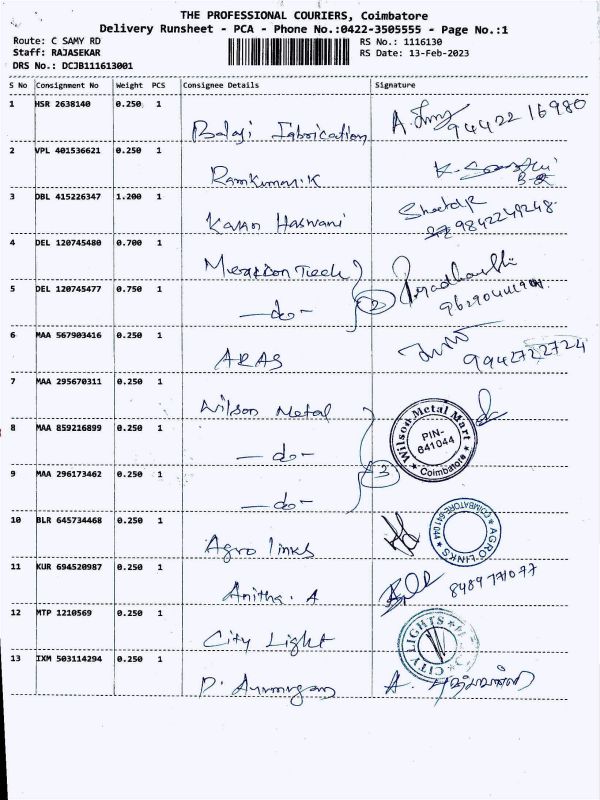 THE PROFESSIONAL COURIERS, Coimbatore
Delivery Runsheet - PCA - Phone No.:0422-3505555 - Page No.:1
Route: C SAMY RD RS No.: 1116130
Staff: RAJASEKAR RS Date: 13-Feb-2023
DRS No.: DCJB111613001
S No Consignment No Weight PCS Consignee Details Signature
1 HSR 2638140 0.250 1
Balaji Fabrication 94422 16980
2 VPL 401536621 0.250 1
Ramkumar.K
3 DBL 415226347 1.200 1
Karan Haswani 9842249248
4 DEL 120745480 0.700 1
5 DEL 120745477 0.750 1
-do- 2
6 MAA 567903416 0.250 1
ARAS 9942722724
7 MAA 295670311 0.250 1
Wilson Metal
8 MAA 859216899 0.250 1
-do- Wilson Metal Mart PIN-641044 Coimbatore
9 MAA 296173462 0.250 1
-do- 3
10 BLR 645734468 0.250 1
Agro links AGRO LINKS COIMBATORE-641 044
11 KUR 694520987 0.250 1
Anitha. A 8489 771077
12 MTP 1210569 0.250 1
City Light CITY LIGHTS
13 IXM 503114294 0.250 1